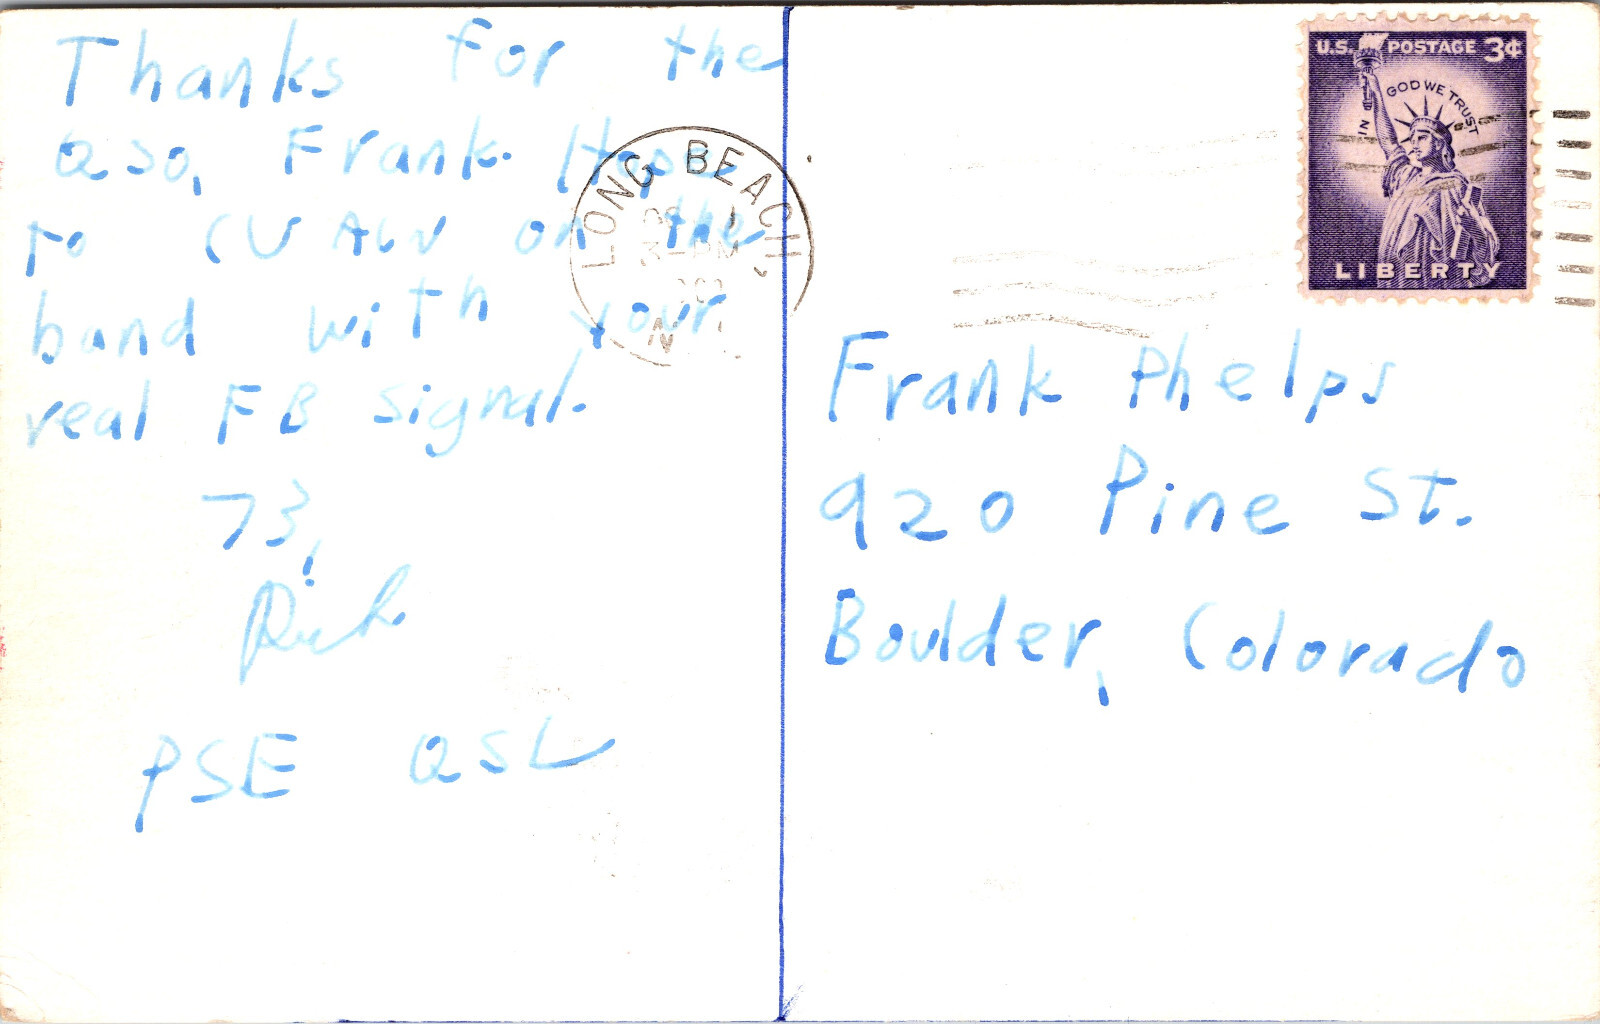 Thanks for the
QSO, Frank. Hope
to CU AGN on the
band with your
real FB signal.
73,
Rich
PSE QSL
LONG BEACH,
3-PM
N
U.S. POSTAGE 3¢
IN GOD WE TRUST
LIBERTY
Frank Phelps
920 Pine St.
Boulder, Colorado